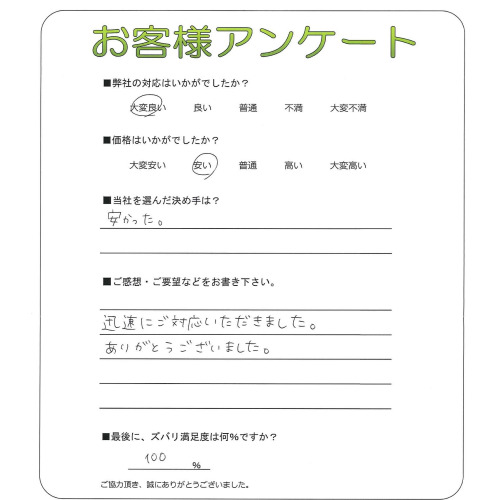 お客様アンケート
■弊社の対応はいかがでしたか？
大変良い 良い 普通 不満 大変不満
■価格はいかがでしたか？
大変安い 安い 普通 高い 大変高い
■当社を選んだ決め手は？
安かった。
■ご感想・ご要望などをお書き下さい。
迅速にご対応いただきました。
ありがとうございました。
■最後に、ズバリ満足度は何%ですか？
100 %
ご協力頂き、誠にありがとうございました。